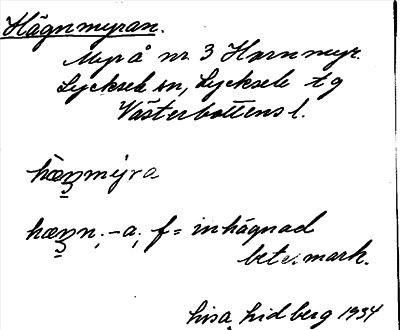 Hägnmyran.
Myr å nr. 3 Hornmyr.
Lycksele sn, Lycksele tg
Västerbottens l.
hæŋnmyra
hæŋn, -a, f = inhägnad
bet. mark.
Lisa Lidberg 1934